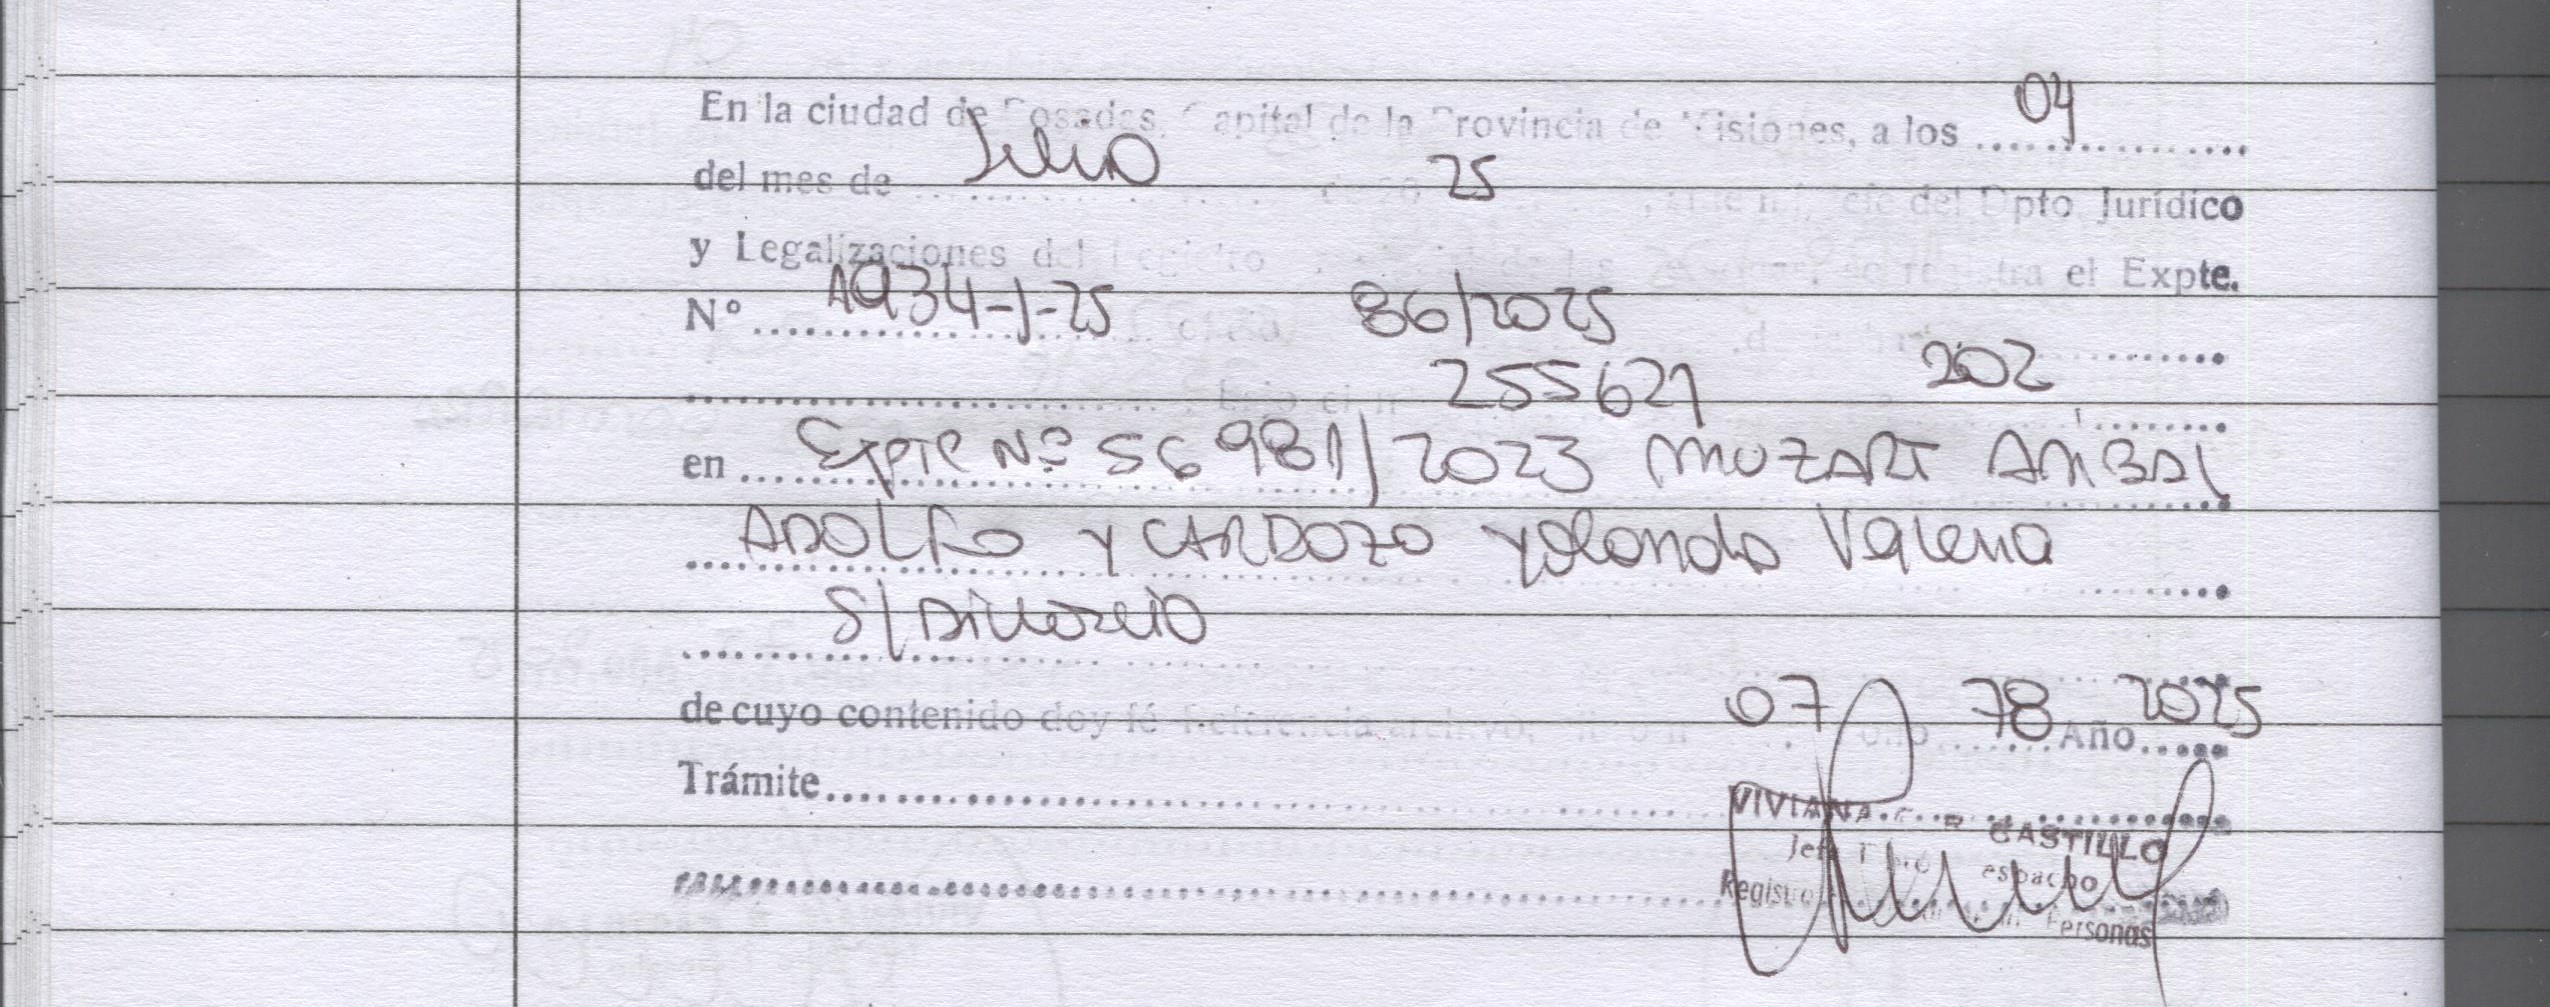 En la ciudad de Posadas, Capital de la Provincia de Misiones, a los 04
del mes de Julio de 20 25 , ante mi, Jefe del Dpto Jurídico
y Legalizaciones del Registro de las Personas, se registra el Expte.
Nº A934-J-25 86/2025
bajo el nº 255621 202
en Expte Nº 56981/2023 MOZART ANIBAL
ADOLFO y CARDOZO Yolanda Valeria
S/ Divorcio
de cuyo contenido doy fé. Referencia archivo, 07 folio 78 Año 2025
Trámite
VIVIANA CASTILLO
Jefe Dpto Despacho
Registro Personas